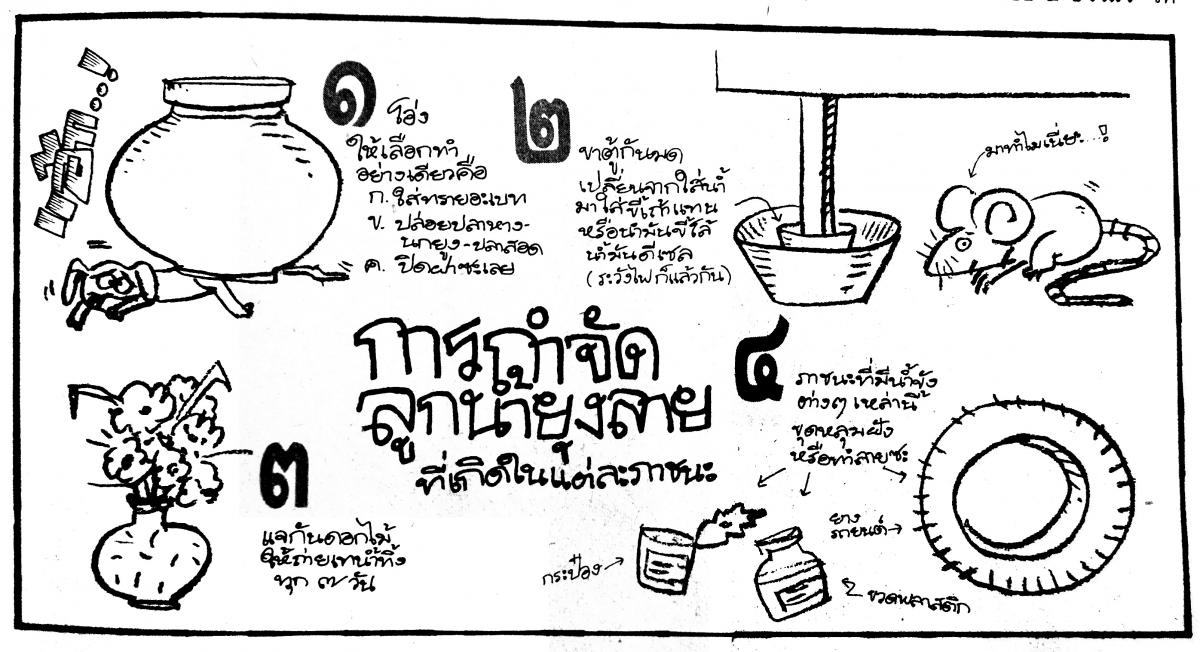 การกำจัด
ลูกน้ำยุงลาย
ที่เกิดในแต่ละภาชนะ
๑ โอ่ง
ให้เลือกทำ
อย่างเดียวคือ
ก. ใส่ทรายอะเบท
ข. ปล่อยปลาหาง-
นกยูง-ปลาสอด
ค. ปิดฝาซะเลย
๒ ขาตู้กันมด
เปลี่ยนจากใส่น้ำ
มาใส่ขี้เถ้าแทน
หรือน้ำมันขี้โล้
น้ำมันดีเซล
(ระวังไฟก็แล้วกัน)
มาทำไมเนี่ยะ...!
๓
แจกันดอกไม้
ให้ถ่ายเทน้ำทิ้ง
ทุก ๗ วัน
๔ ภาชนะที่มีน้ำขัง
ต่างๆ เหล่านี้
ขุดหลุมฝัง
หรือทำลายซะ
กระป๋อง
ขวดพลาสติก
ยาง
รถยนต์